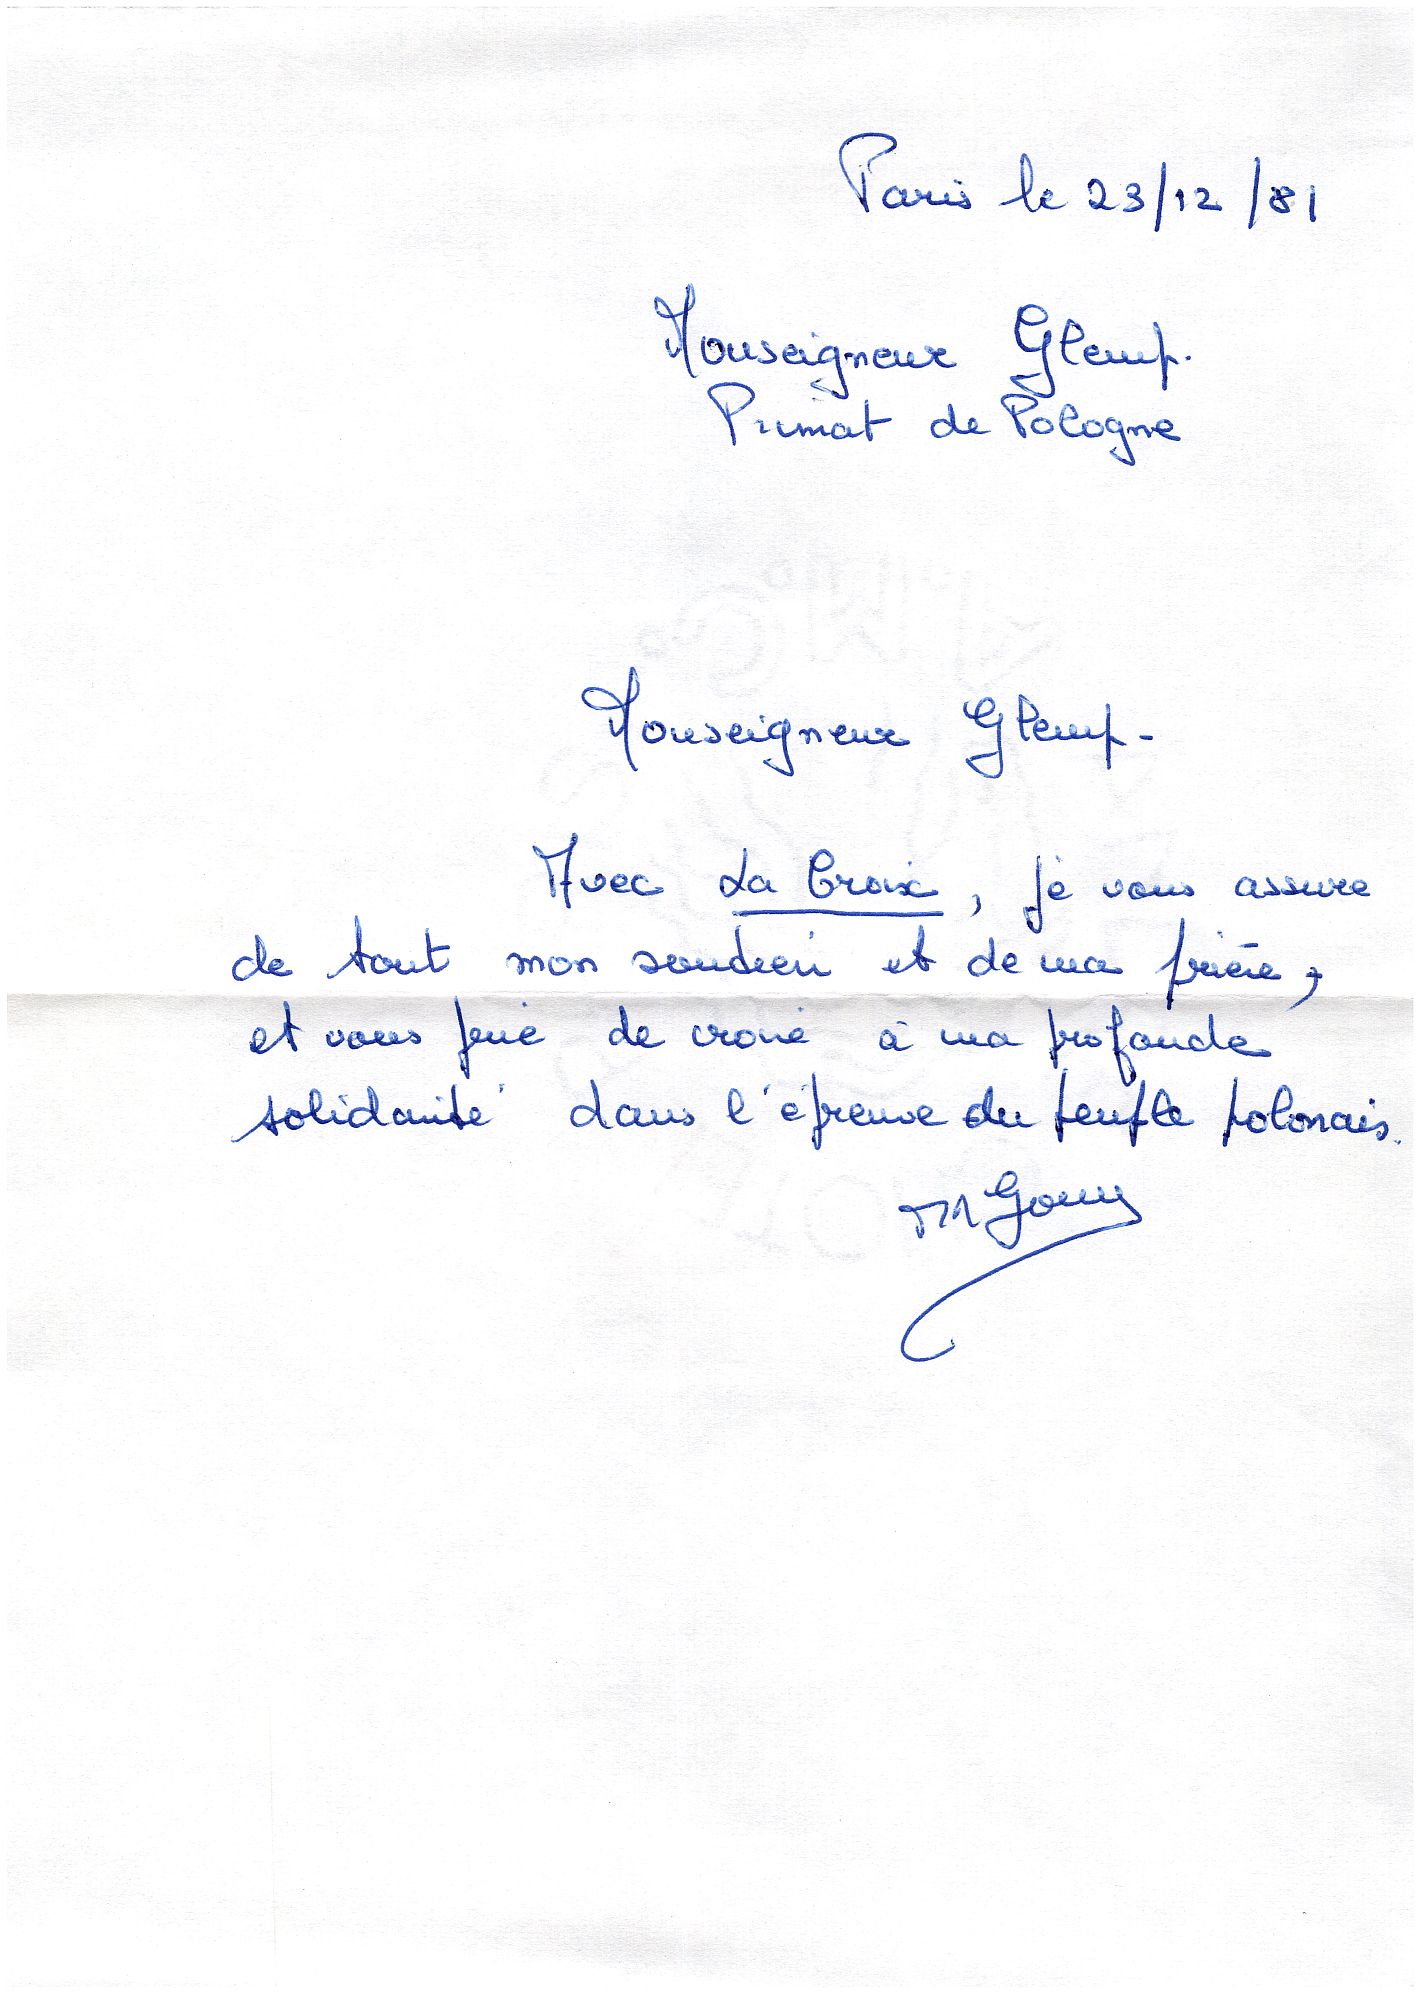 Paris le 23/12/81
Monseigneur Glemp.
Primat de Pologne
Monseigneur Glemp-
Avec La Croix, je vous assure
de tout mon soutien et de ma prière,
et vous prie de croire à ma profonde
solidarité dans l'épreuve du peuple polonais.